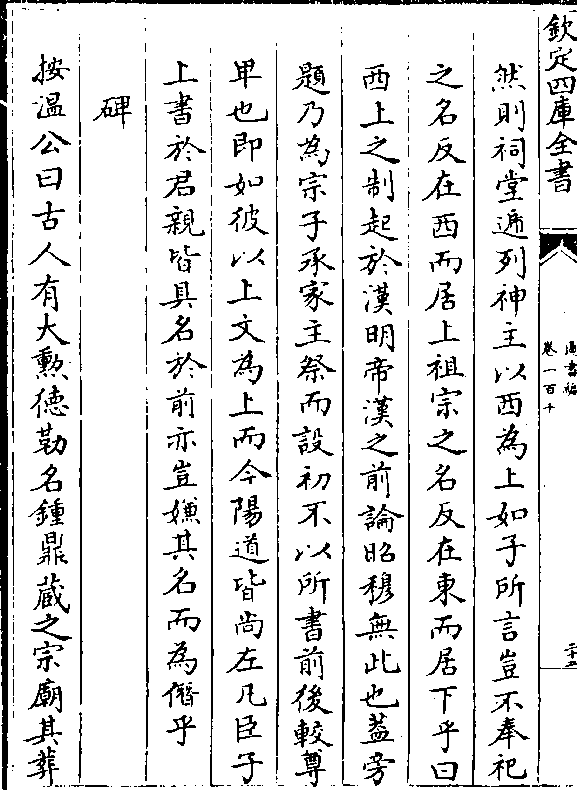 欽定四庫全書
圖書編
卷一百十
然則祠堂遞列神主以西為上如子所言豈不奉祀
之名反在西而居上祖宗之名反在東而居下乎曰
西上之制起於漢明帝漢之前論昭穆無此也蓋旁
題乃為宗子承家主祭而設初不以所書前後較尊
卑也即如彼以上文為上而今陽道皆尚左凡臣子
上書於君親皆具名於前亦豈嫌其名而為僭乎
碑
按溫公曰古人有大勲德勒名鍾鼎蔵之宗廟其葬